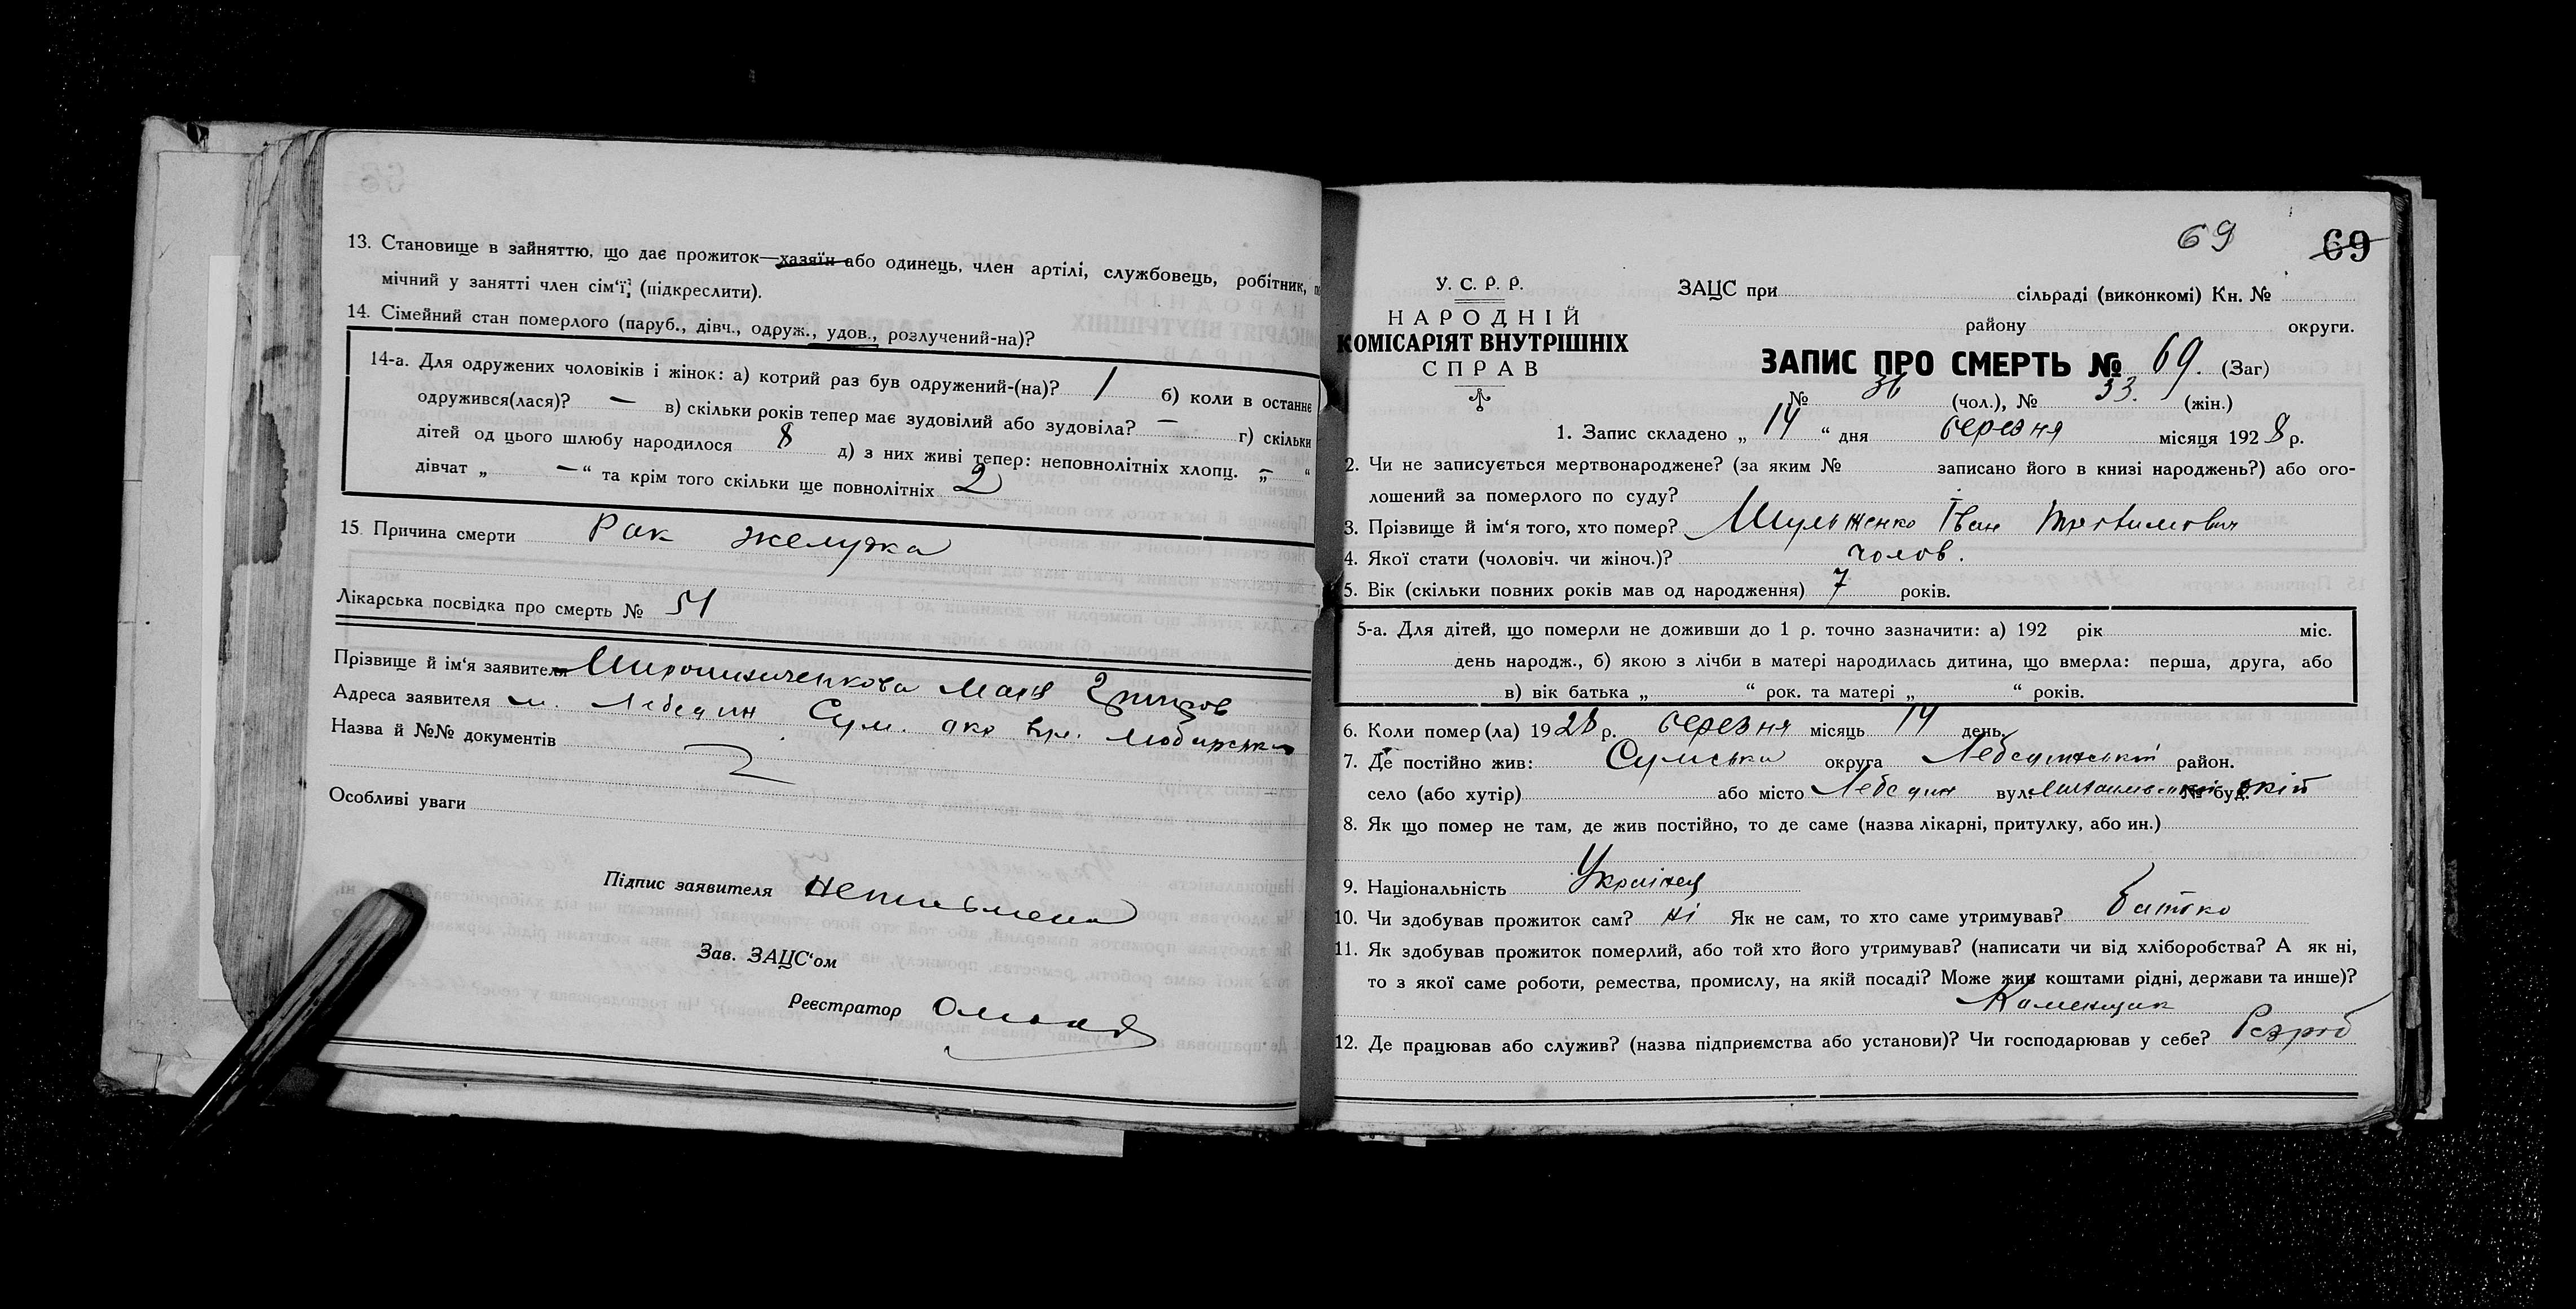 13. Становище в зайняттю, що дає прожиток—хазяїн або одинець, член артілі, службовець, робітник,
мічний у занятті член сім‘ї; (підкреслити).
14. Сімейний стан померлого (паруб., дівч., одруж., удов., розлучений-на)?
14-а. Для одружених чоловіків і жінок: а) котрий раз був одружений-(на)? 1 б) коли в останнє
одружився(лася)? — в) скільки років тепер має зудовілий або зудовіла? — г) скільки
дітей од цього шлюбу народилося 8 д) з них живі тепер: неповнолітніх хлопц. „ — “
дівчат „ — “ та крім того скільки ще повнолітніх 2
15. Причина смерти Рак желудка
Лікарська посвідка про смерть № 51
Прізвище й ім‘я заявителя Мирошниченкова Марія
Адреса заявителя м. Лебедин Сум. окр вул.
Назва й №№ документів
Особливі уваги
Підпис заявителя Неписьмена
Зав. ЗАЦС‘ом
Реєстратор
69 69
У. С. Р. Р.
НАРОДНІЙ
КОМІСАРІЯТ ВНУТРІШНІХ
СПРАВ
ЗАЦС при сільраді (виконкомі) Кн. №
району округи.
ЗАПИС ПРО СМЕРТЬ № 69. (Заг)
№ 36 (чол.), № 33. (жін.)
1. Запис складено „ 14 “ дня березня місяця 1928 р.
2. Чи не записується мертвонароджене? (за яким № записано його в книзі народжень?) або ого-
лошений за померлого по суду?
3. Прізвище й ім‘я того, хто помер? Шульженко Іван
4. Якої стати (чоловіч. чи жіноч.)? чолов.
5. Вік (скільки повних років мав од народження) 7 років.
5-а. Для дітей, що померли не доживши до 1 р. точно зазначити: а) 192 рік міс.
день народж., б) якою з лічби в матері народилась дитина, що вмерла: перша, друга, або
в) вік батька „ “ рок. та матері „ “ років.
6. Коли помер(ла) 1928 р. березня місяць 14 день.
7. Де постійно жив: Сумська округа Лебединський район.
село (або хутір) або місто Лебедин вул. № буд.
8. Як що помер не там, де жив постійно, то де саме (назва лікарні, притулку, або ин.)
9. Національність Українец
10. Чи здобував прожиток сам? ні Як не сам, то хто саме утримував? батько
11. Як здобував прожиток померлий, або той хто його утримував? (написати чи від хліборобства? А як ні,
то з якої саме роботи, ремества, промислу, на якій посаді? Може жив коштами рідні, держави та инше)?
Каменщик
12. Де працював або служив? (назва підприємства або установи)? Чи господарював у себе?